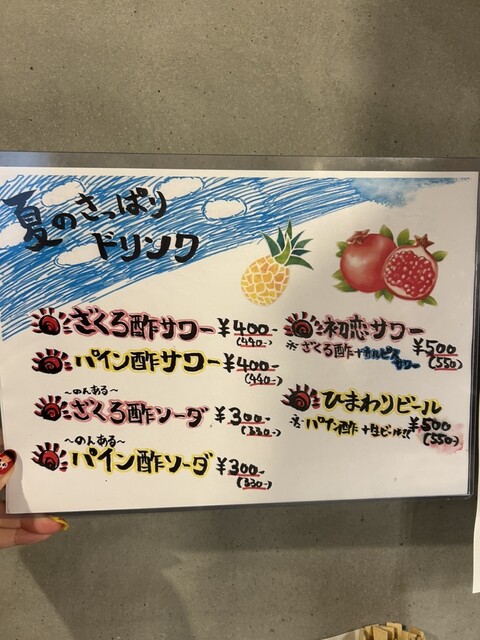 夏のさっぱり
ドリンク
ざくろ酢サワー ¥400-
(440-)
パイン酢サワー ¥400-
(440-)
〜のんある〜
ざくろ酢ソーダ ¥300-
(330-)
〜のんある〜
パイン酢ソーダ ¥300-
(330-)
初恋サワー
※ざくろ酢+カルピスサワー ¥500
(550)
ひまわりビール
※パイン酢+生ビール!! ¥500
(550-)